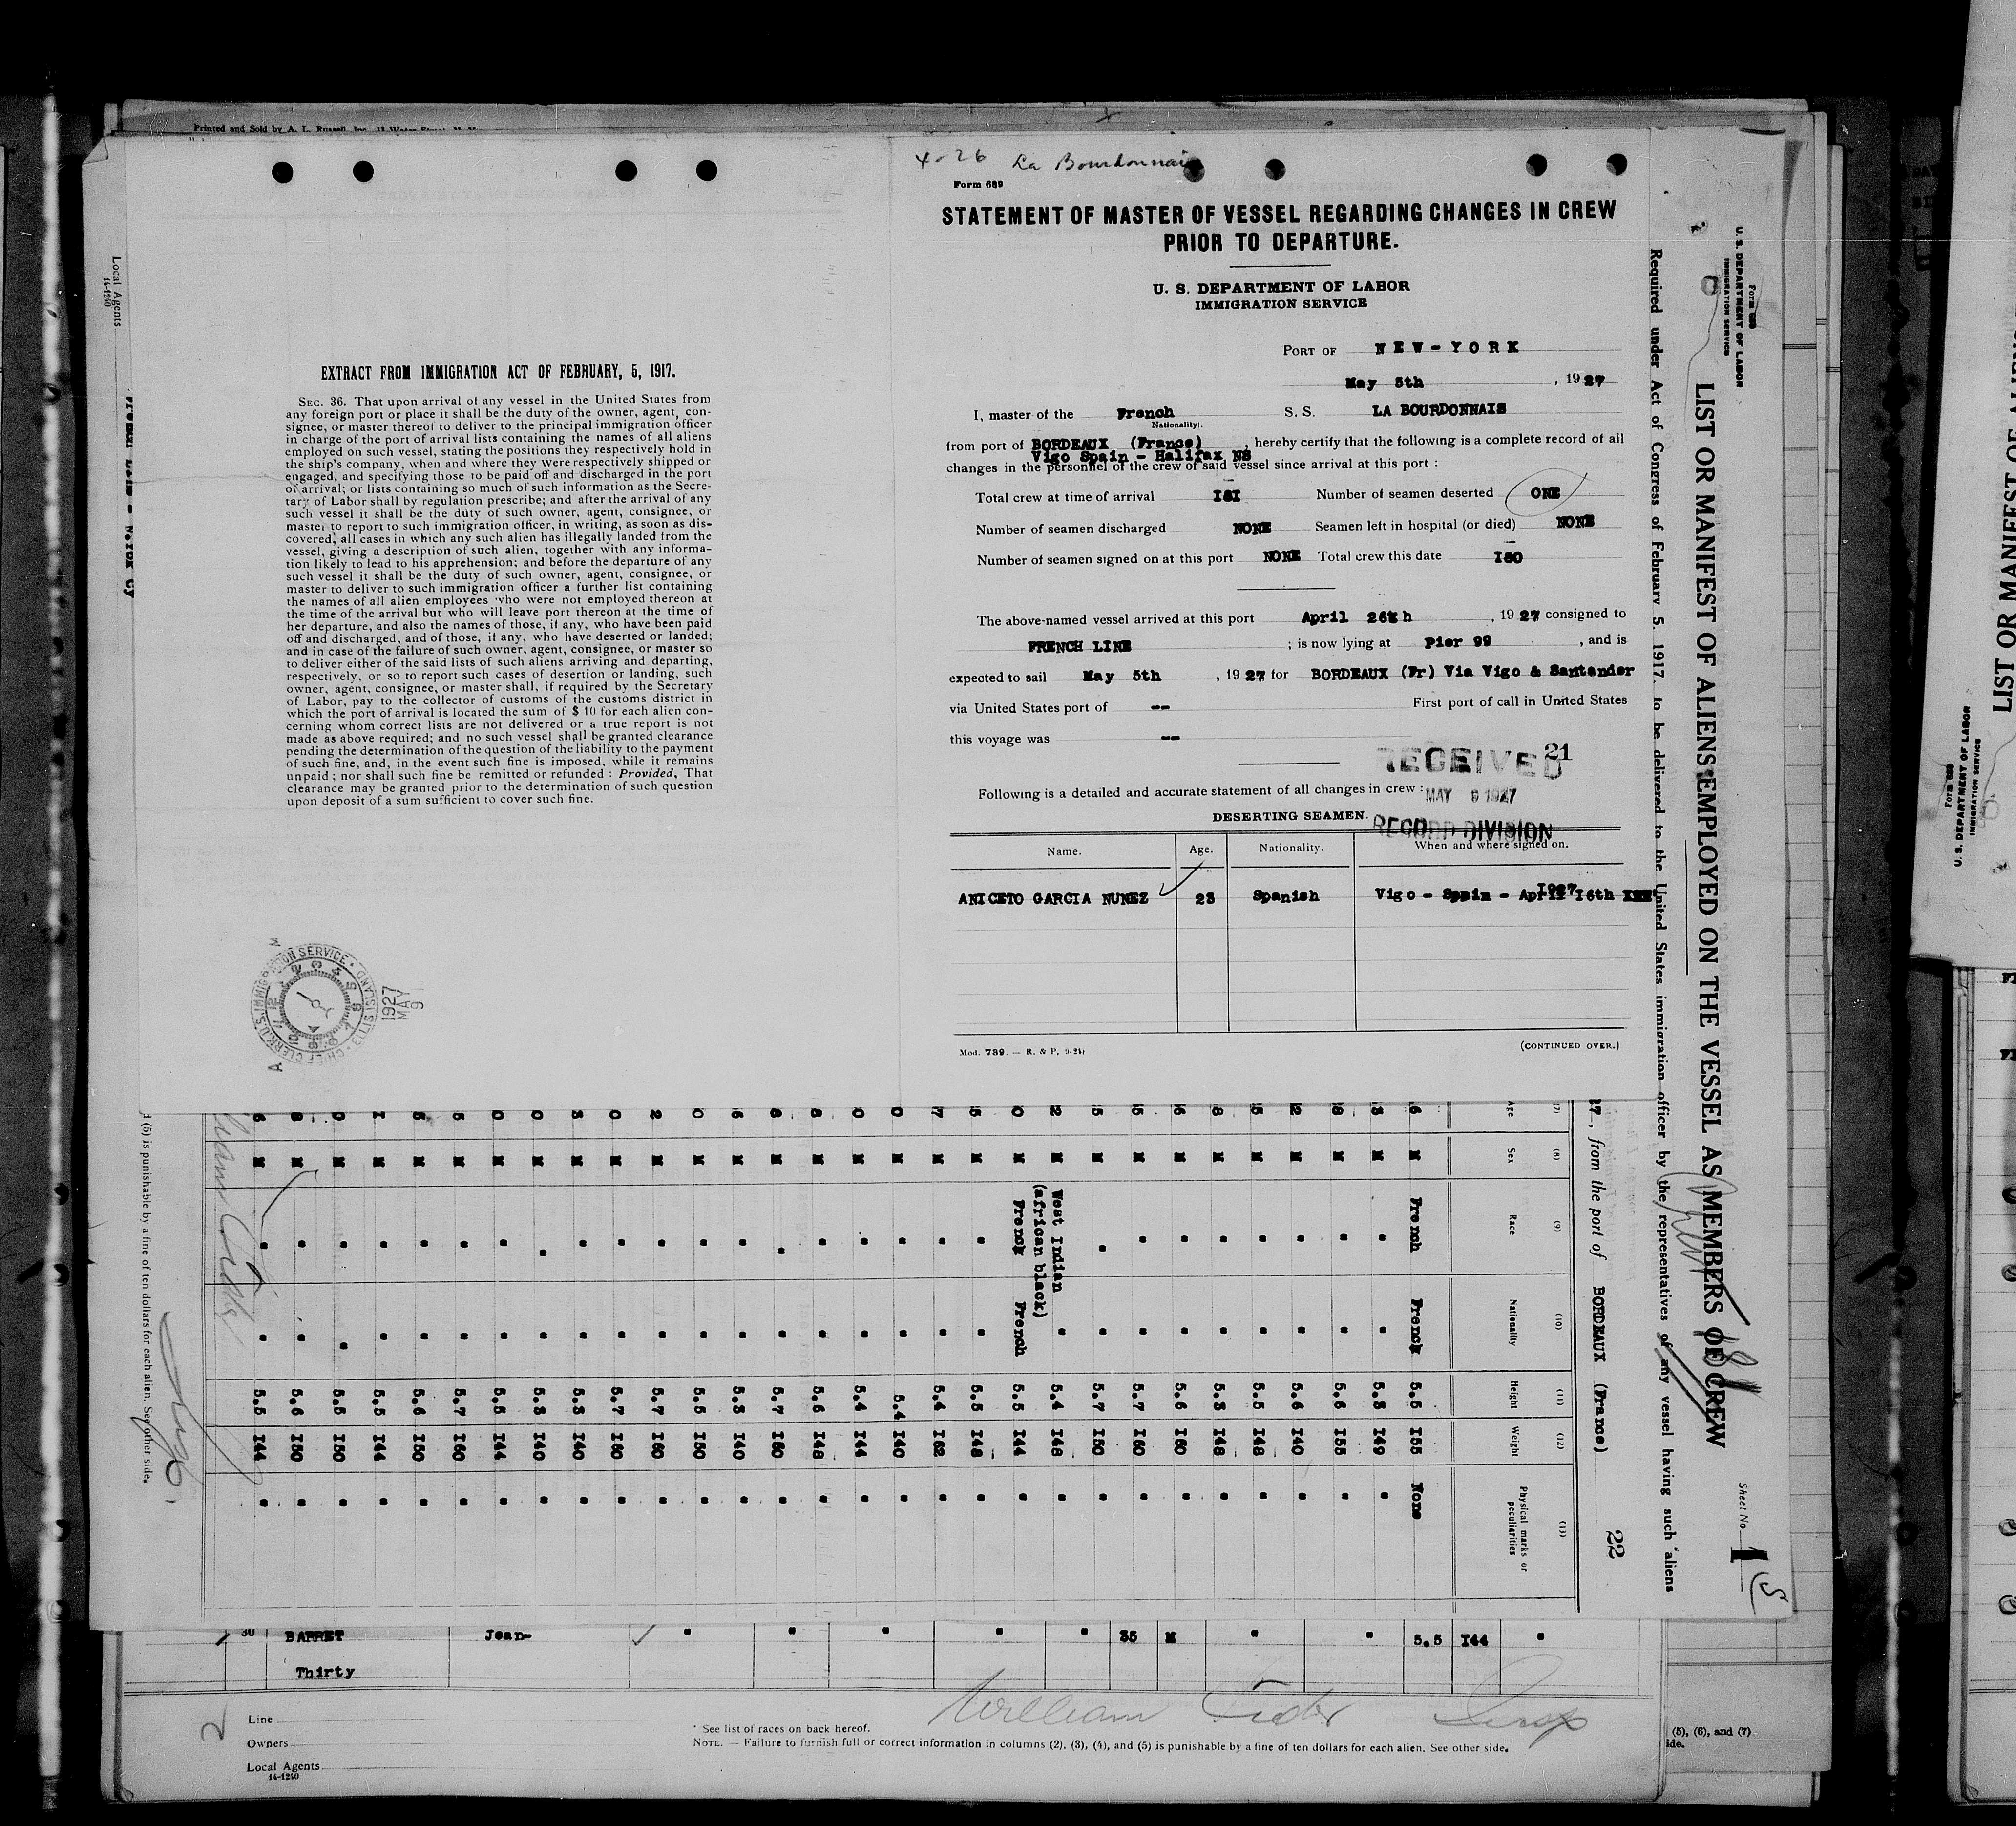 Printed and Sold by A. L. Russell, Inc.
Local Agents
14-1240
EXTRACT FROM IMMIGRATION ACT OF FEBRUARY, 5, 1917.
SEC. 36. That upon arrival of any vessel in the United States from
any foreign port or place it shall be the duty of the owner, agent, con-
signee, or master thereof to deliver to the principal immigration officer
in charge of the port of arrival lists containing the names of all aliens
employed on such vessel, stating the positions they respectively hold in
the ship's company, when and where they were respectively shipped or
engaged, and specifying those to be paid off and discharged in the port
of arrival; or lists containing so much of such information as the Secre-
tary of Labor shall by regulation prescribe; and after the arrival of any
such vessel it shall be the duty of such owner, agent, consignee, or
master to report to such immigration officer, in writing, as soon as dis-
covered, all cases in which any such alien has illegally landed from the
vessel, giving a description of such alien, together with any informa-
tion likely to lead to his apprehension; and before the departure of any
such vessel it shall be the duty of such owner, agent, consignee, or
master to deliver to such immigration officer a further list containing
the names of all alien employees who were not employed thereon at
the time of the arrival but who will leave port thereon at the time of
her departure, and also the names of those, if any, who have been paid
off and discharged, and of those, if any, who have deserted or landed;
and in case of the failure of such owner, agent, consignee, or master so
to deliver either of the said lists of such aliens arriving and departing,
respectively, or so to report such cases of desertion or landing, such
owner, agent, consignee, or master shall, if required by the Secretary
of Labor, pay to the collector of customs of the customs district in
which the port of arrival is located the sum of $ 10 for each alien con-
cerning whom correct lists are not delivered or a true report is not
made as above required; and no such vessel shall be granted clearance
pending the determination of the question of the liability to the payment
of such fine, and, in the event such fine is imposed, while it remains
unpaid; nor shall such fine be remitted or refunded : Provided, That
clearance may be granted prior to the determination of such question
upon deposit of a sum sufficient to cover such fine.
1927
MAY
9
4-26 La Bourdonnais
Form 689
STATEMENT OF MASTER OF VESSEL REGARDING CHANGES IN CREW
PRIOR TO DEPARTURE.
U. S. DEPARTMENT OF LABOR
IMMIGRATION SERVICE
PORT OF NEW-YORK
May 5th , 1927
I, master of the French S. S. LA BOURDONNAIS
Nationality).
from port of BORDEAUX (France) , hereby certify that the following is a complete record of all
Vigo Spain - Halifax NS
changes in the personnel of the crew of said vessel since arrival at this port :
Total crew at time of arrival I8I Number of seamen deserted ONE
Number of seamen discharged NONE Seamen left in hospital (or died) NONE
Number of seamen signed on at this port NONE Total crew this date I80
The above-named vessel arrived at this port April 26th , 1927 consigned to
FRENCH LINE ; is now lying at Pier 99 , and is
expected to sail May 5th , 1927 for BORDEAUX (Fr) Via Vigo & Santander
via United States port of -- First port of call in United States
this voyage was --
RECEIVED 21
Following is a detailed and accurate statement of all changes in crew :
MAY 9 1927
DESERTING SEAMEN.
RECORD DIVISION
Name. Age. Nationality. When and where signed on.
ANICETO GARCIA NUNEZ 23 Spanish Vigo - Spain - April I6th I927
Mod. 789. — R. & P. 9-24)
(CONTINUED OVER.)
Form 689
U. S. DEPARTMENT OF LABOR
IMMIGRATION SERVICE
LIST OR MANIFEST OF ALIENS EMPLOYED ON THE VESSEL AS MEMBERS OF CREW
Sheet No. 1
Required under Act of Congress of February 5, 1917, to be delivered to the United States immigration officer by the representatives of any vessel having such aliens
27, from the port of BORDEAUX (France) 22
(7) (8) (9) (10) (11) (12) (13)
Age Sex Race Nationality Height Weight Physical marks or peculiarities
6 M French French 5.5 I55 None
3 M " " 5.3 I49 "
8 M " " 5.6 I55 "
2 M " " 5.6 I40 "
5 M " " 5.5 I48 "
8 M " " 5.3 I48 "
6 M " " 5.6 I60 "
5 M " " 5.7 I60 "
5 M " " 5.7 I50 "
2 M West Indian (african black) " 5.4 I48 "
0 M French French 5.5 I44 "
5 M " " 5.5 I48 "
7 M " " 5.4 I62 "
0 M " " 5.4 I40 "
0 M " " 5.4 I44 "
8 M " " 5.6 I48 "
8 M " " 5.7 I50 "
6 M " " 5.3 I40 "
0 M " " 5.5 I50 "
2 M " " 5.7 I60 "
0 M " " 5.7 I60 "
3 M " " 5.3 I40 "
0 M " " 5.3 I40 "
0 M " " 5.5 I44 "
5 M " " 5.7 I60 "
5 M " " 5.6 I50 "
I M " " 5.5 I44 "
0 M " " 5.5 I50 "
8 M " " 5.6 I50 "
6 M " " 5.5 I44 "
(5) is punishable by a fine of ten dollars for each alien. See other side.
30 BARRET Jean- " " " " " 35 M " " 5.5 I44 "
Thirty
2
Line
Owners
Local Agents
14-1240
* See list of races on back hereof.
NOTE. — Failure to furnish full or correct information in columns (2), (3), (4), and (5) is punishable by a fine of ten dollars for each alien. See other side.
William
(5), (6), and (7)
ide.
LIST OR MANIFEST OF
Form 689
U. S. DEPARTMENT OF LABOR
IMMIGRATION SERVICE